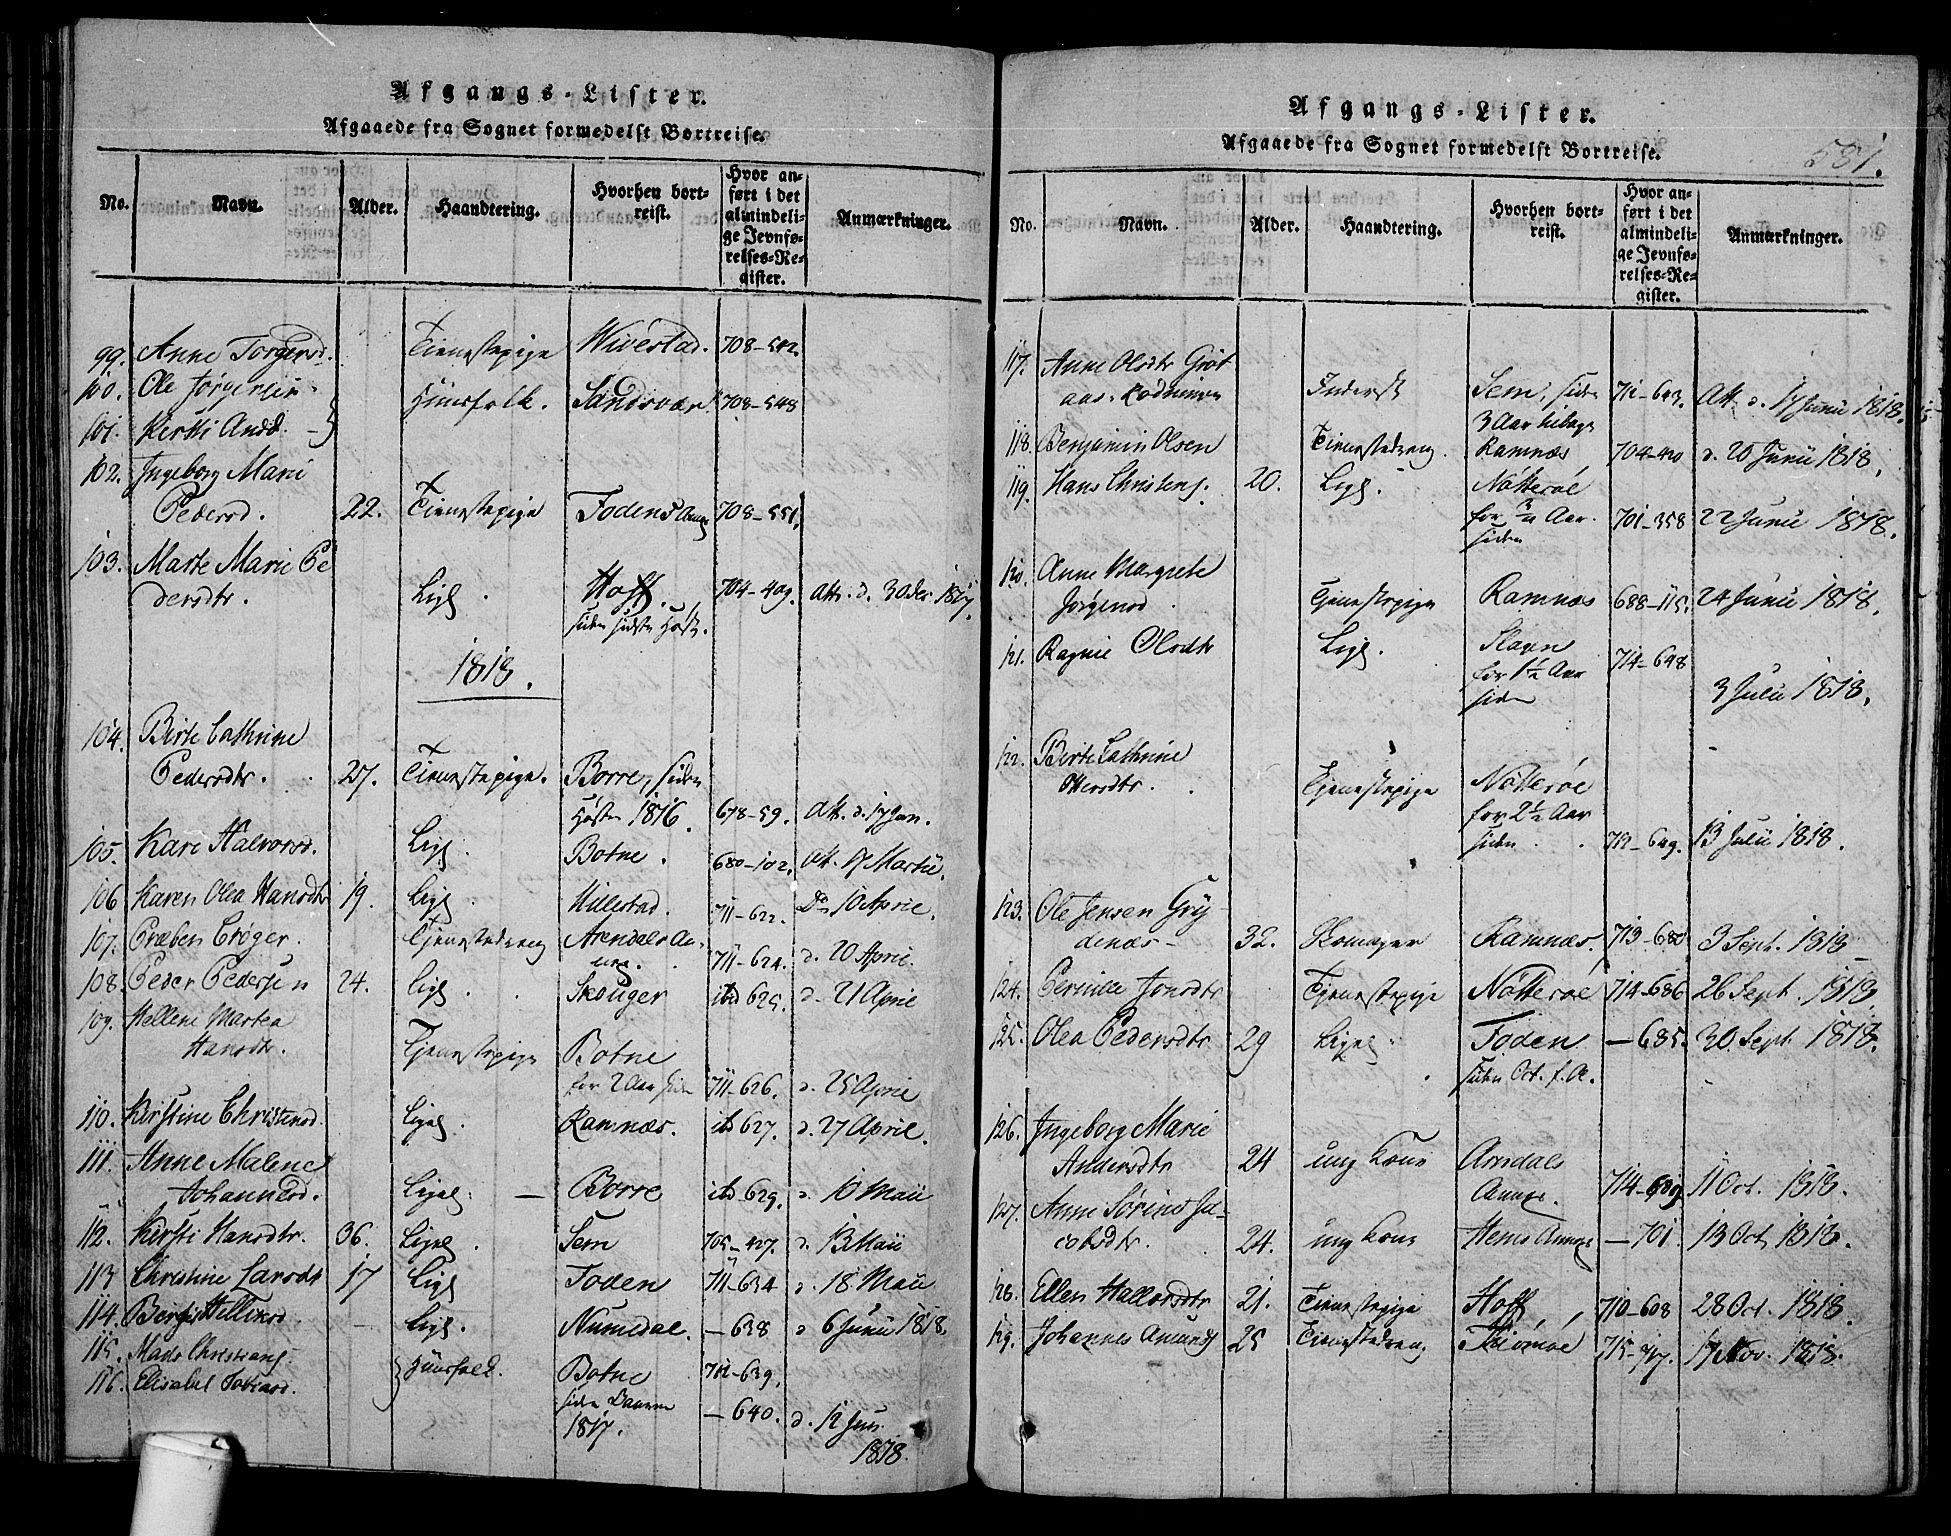 Afgangs-Lister.
Afgaaede fra Sognet formedelst Bortreise.
No. Navn. Alder. Haandtering. Hvorhen bortreist. Hvor anført i det almindelige Jevnførelses-Register. Anmærkninger.
99. Anne Torgersd. Tienestepige Wivestad. 708-542.
100. Ole Jørgensen
101. Kersti And. Huusfolk. Sandsvær 708-548
102. Ingeborg Marie
Pedersd. 22. Tienestepige Fodens Ann 708-551.
103. Marte Marie Pe
dersdtr. Lige. Hoff. 704-409. Att. d. 30 Dec 1817.
siden sidste Høst.
1818.
104. Birte Cathrine
Pedersdtr. 27. Tienestepige. Borre, siden
Høsten 1816. 678-59. Att. d. 17 Jan.
105. Kari Halvorsd. Lige. Botne. 680-102. Att. 17 Martii.
106 Karen Olea Hansdtr 19. Lige. Hillestad. 711-622. Do 10 April.
107. Præben Crøger. Tjenestedreng Arendals An-
neg. 711-624. d. 20 April.
108. Peder Pedersen 24. Lige. Skouger itd 625. d. 21 April
109. Hellene Martea
Hansdtr. Tjenestepige Botne
for 2 Aar siden 711-626. d. 25 April
110. Kirstine Christensd. Lige. Ramnæs. itd 627. d. 27 April.
111. Anne Malene
Johannesd. Lige. — Borre itd 629. d. 10 Maii
112. Kersti Hansdtr. 36. Lige. Sem 705-427. d. 13 Maii
113 Christine Larsdt 17 Lige Foden 711-634 d. 18 Maii
114. Hellesd. Lige. Numedal. — 638 d 6 Junii 1818.
115. Mads Christians.
116. Elisabet Huusfolk. Botne 712-639.
siden
1817. — 640. d. 12 Jun.
1818.
Afgangs-Lister.
Afgaaede fra Sognet formedelst Bortreise.
581.
No. Navn. Alder. Haandtering. Hvorhen bortreist. Hvor anført i det almindelige Jevnførelses-Register. Anmærkninger.
117. Anne Olsdtr Grøt
aas- Inderst Sem, siden 711-643. Att. d. 17 Junii 1818.
3 Aar tilbage
118. Benjamin Olsen Tienestedreng. Ramnæs 704-420 d. 20 Junii 1818.
119. Hans Christens. 20. Lige. Nøtterøe
for ½ Aar. 701-358 22 Junii 1818.
siden
120. Anne Margrete
Jørgensd. Tjenestepige Ramnæs 688-115. 24 Junii 1818.
121. Ragnie Olsdtr Lige. Slagen 714-648
for 1½ Aar
siden 3 Julii 1818.
122. Berte Cathrine
Ottersdtr. Tjenestepige Nøtterøe
for 2½ Aar
siden. 712-649. 13 Julii 1818.
123. Ole Jensen Gry
denæs- 32. Skomager Ramnæs. 713-680 3 Sept. 1818
124. Pernilla Jonsdtr Tjenestepige Nøtterøe 714-686 26 Sept. 1818
125. Olea Pedersdtr 29 Lige. Foden — 685. 30. Sept. 1818.
siden Oct. f. A.
126. Ingeborg Marie
Andersdtr 24 ung Kone Arndals
Annex. 714-689 11 Oct. 1818.
127. Anne Sørine Ja-
cobsdtr. 24. ung Kone Annex — 701 13 Oct. 1818.
128. Ellen Hallvorsdtr 21. Tienestepige Hoff 710-608 28 Oct. 1818.
129. Johannes Amundt 25 Tienestedreng Tiømøe 715-717. 17 Nov. 1818.